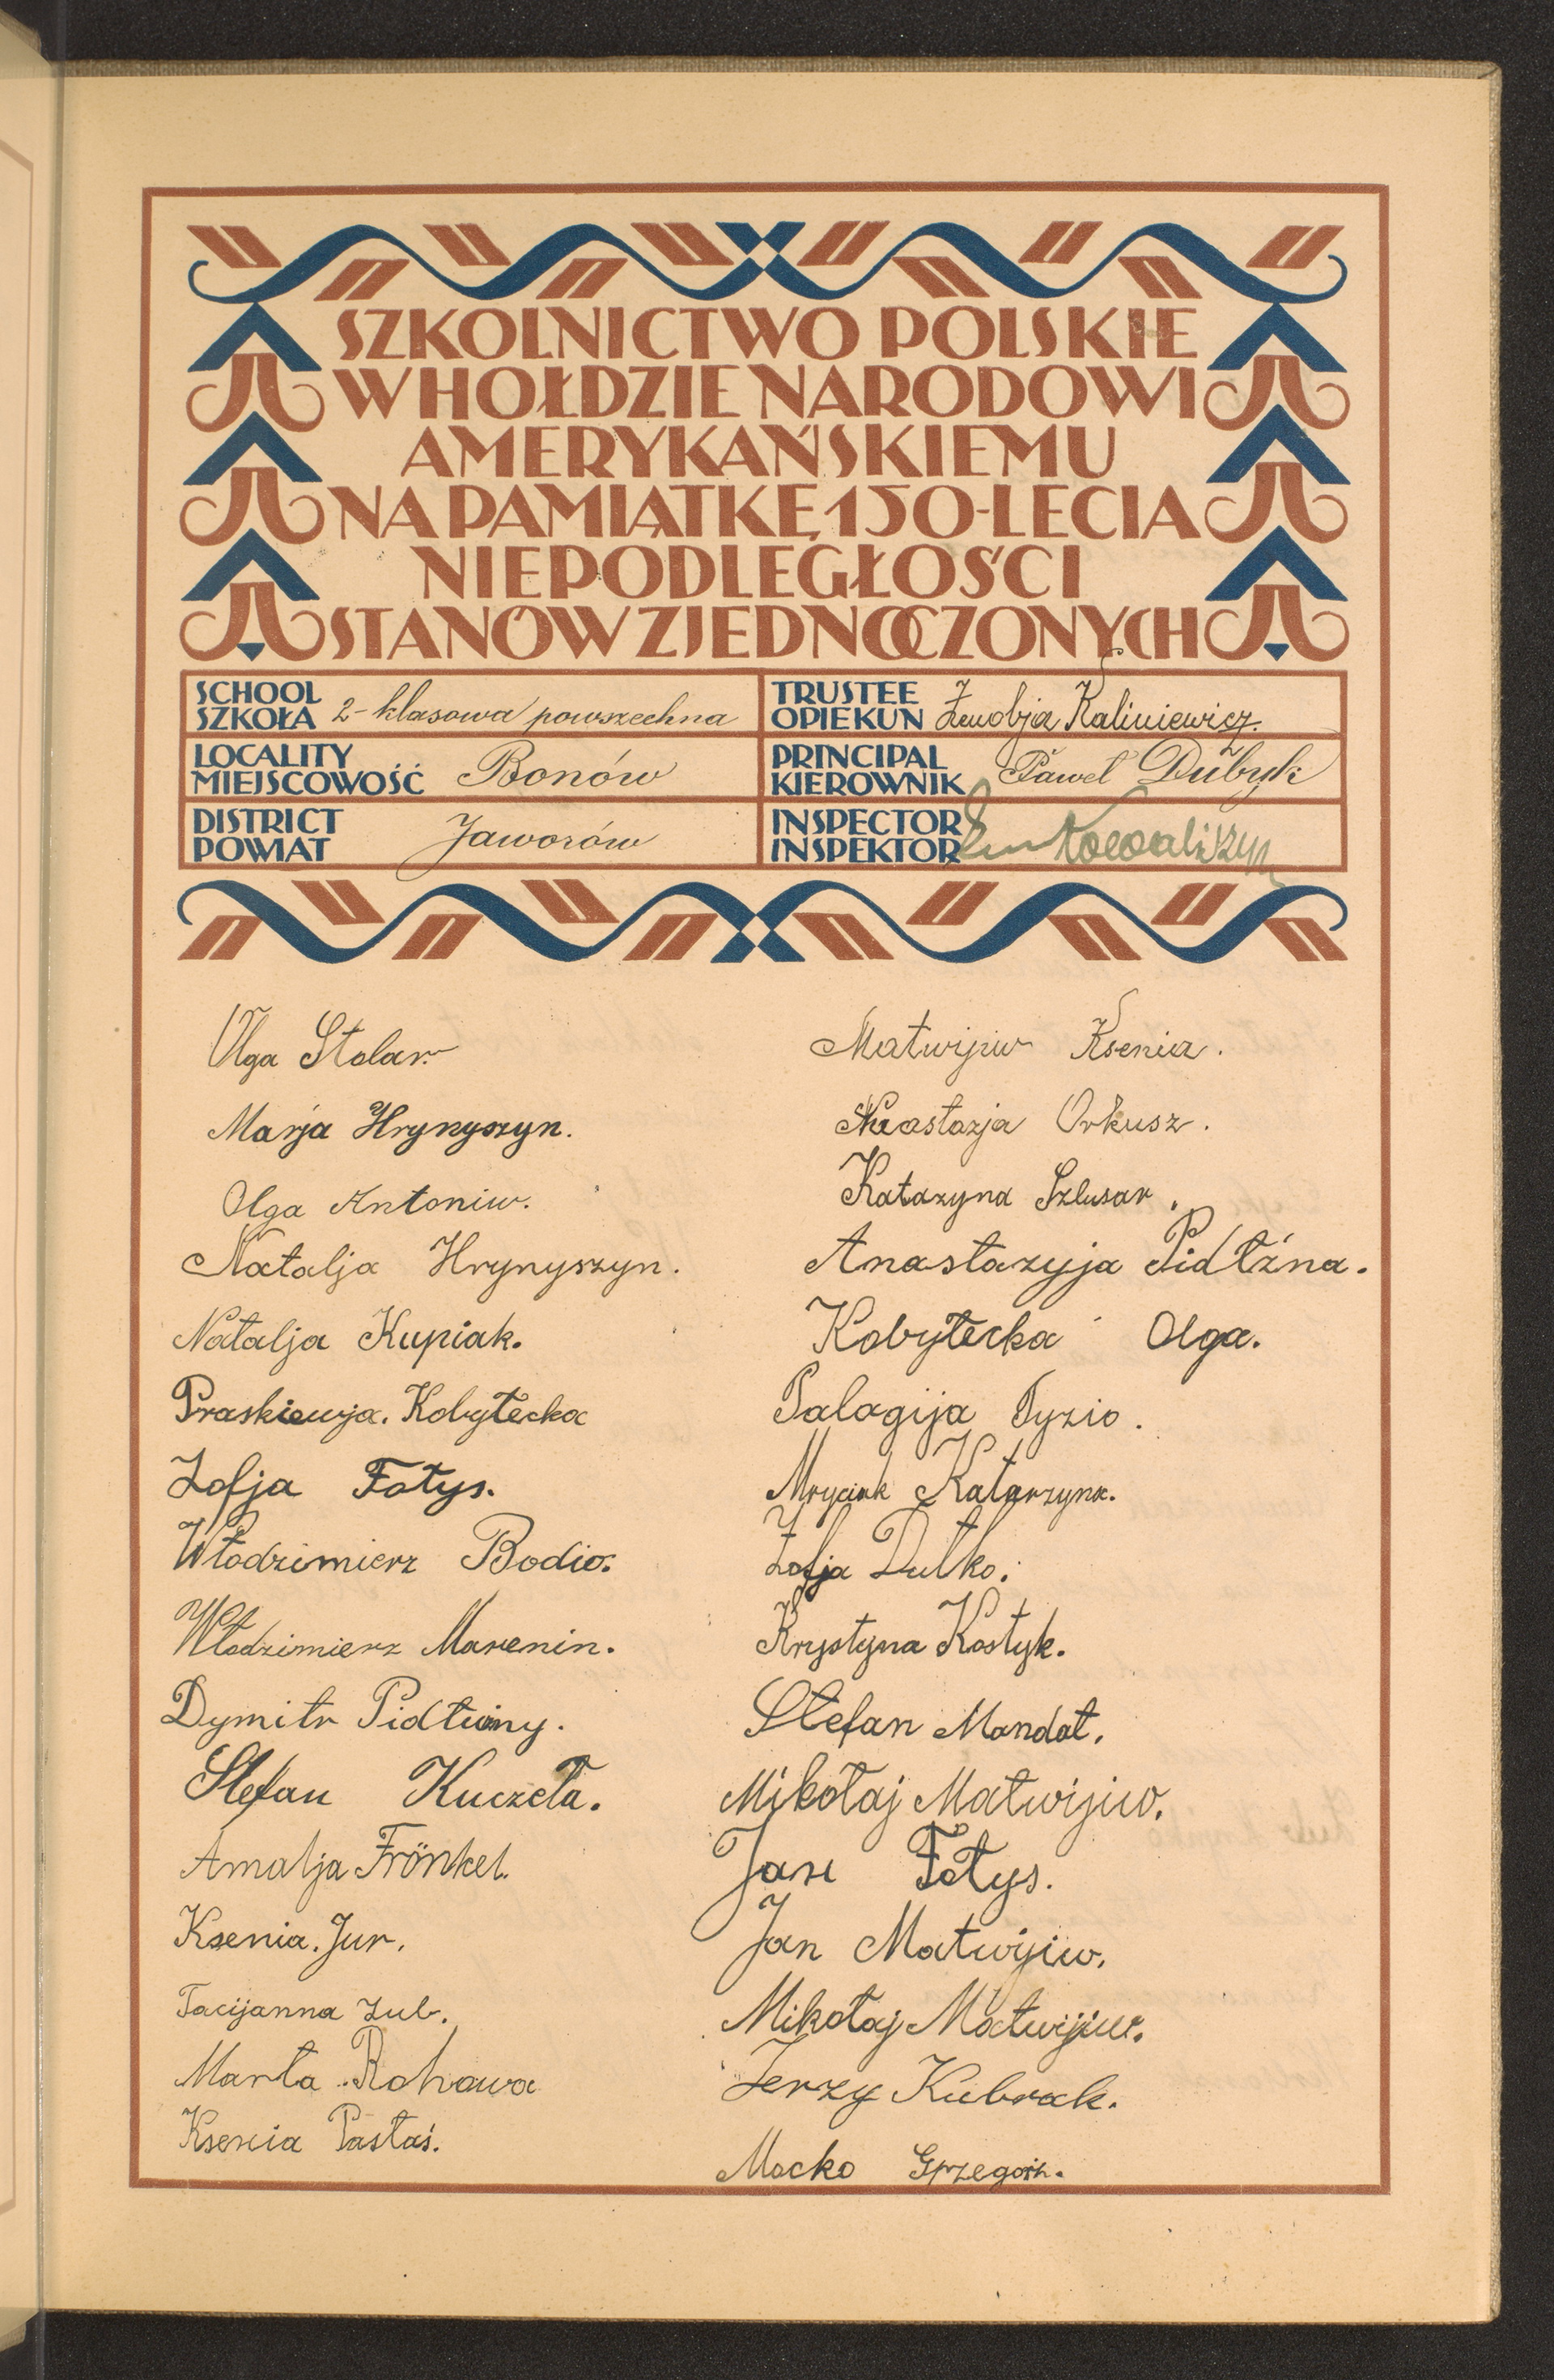 SZKOLNICTWO POLSKIE
W HOŁDZIE NARODOWI
AMERYKAŃSKIEMU
NA PAMIĄTKĘ 150-LECIA
NIEPODLEGŁOŚCI
STANÓW ZJEDNOCZONYCH
SCHOOL
SZKOŁA 2-klasowa powszechna
TRUSTEE
OPIEKUN Kaliniewicz.
LOCALITY
MIEJSCOWOŚĆ Bonów
PRINCIPAL
KIEROWNIK Paweł Dubyk
DISTRICT
POWIAT Jaworów
INSPECTOR
INSPEKTOR Kowaliszyn
Olga Stolar.
Marja Hrynyszyn.
Olga Antoniw.
Natalja Hrynyszyn.
Natalja Kupiak.
Praskiewja. Kobyłecka
Zofja Fotys.
Włodzimierz Bodio.
Włodzimierz Marenin.
Dymitr
Stefan Kuczeła.
Amalja Frönkel.
Ksenia. Jur.
Tacijanna Zub.
Marta Rohowa
Ksenia Pastaś.
Matwijiw Ksenia.
Orkusz.
Katazyna Szlusar.
Anastazyja Pidłźna.
Kobyłecka Olga.
Palagija Tyzio.
Mryciak Katarzyna.
Zofja Dutko.
Krystyna Kostyk.
Stefan Mandat.
Mikołaj Matwijiw.
Jan Fotys.
Jan Matwijiw.
Mikołaj Matwijiw.
Jerzy Kubrak.
Macko Grzegorz.